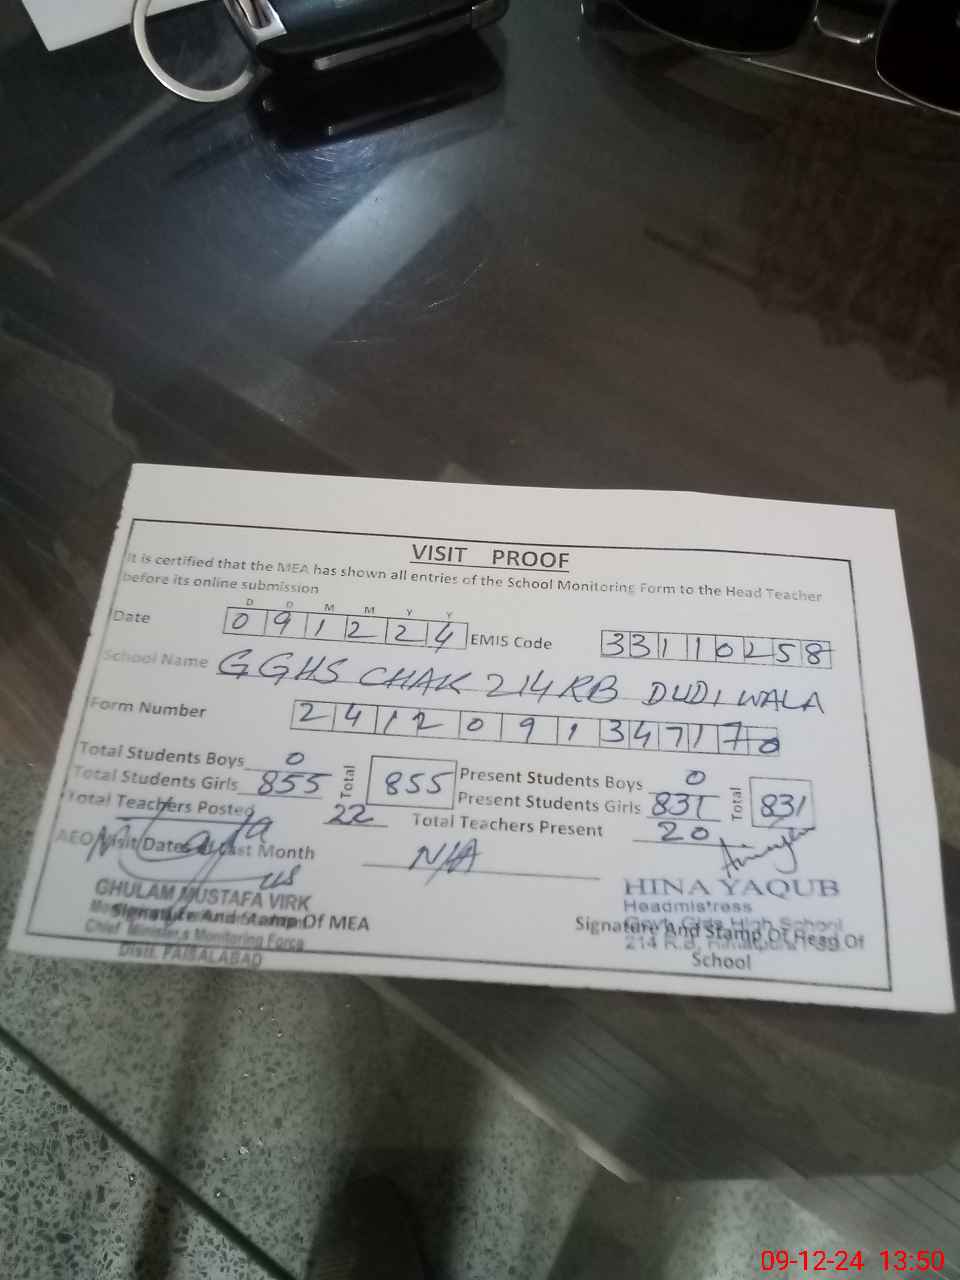 VISIT PROOF
It is certified that the MEA has shown all entries of the School Monitoring Form to the Head Teacher
before its online submission
D D M M Y Y
Date 0 9 1 2 2 4 EMIS Code 3 3 1 1 0 2 5 8
School Name GGHS CHAK 214 RB DUDIWALA
Form Number 2 4 1 2 0 9 1 3 4 7 1 7 0
Total Students Boys 0 Total 855 Present Students Boys 0 Total 831
Total Students Girls 855 Present Students Girls 831
Total Teachers Posted 22 Total Teachers Present 20
AEO Visit Date Last Month N/A
GHULAM MUSTAFA VIRK
Signature And Stamp Of MEA
Chief Minister's Monitoring Force
Distt. FAISALABAD
HINA YAQUB
Headmistress
Govt. Girls High School
214 R.B,
Signature And Stamp Of Head Of
School
09-12-24 13:50